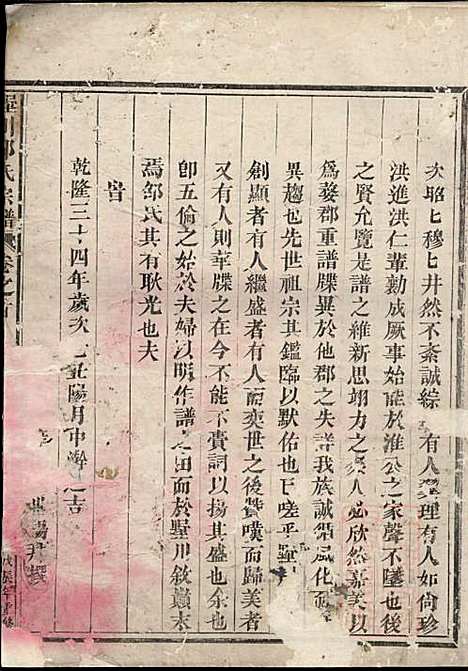 次昭昭穆穆井然不紊誠綜有人經理有人如尚珍
洪進洪仁輩勷成厥事始能於淮公之家聲不墜也後
之賢允覽是譜之維新思翊力之人必欣然嘉美以
爲婺郡重譜牒異於他郡之失譜我族誠翩風化而
異趨也先世祖宗其鑑臨以默佑也已嗟乎
創顯者有人繼盛者有人而奕世之後贊嘆而歸美者
又有人則華牒之在今不能不賣詞以揚其盛也余也
卽五倫之始於夫婦以明作譜之由而於墅川敘巔末
焉邹氏其有耿光也夫
旹
乾隆三十四年歲次己丑陽月中澣之吉
川邹氏宗譜 卷之首
戊辰年重修